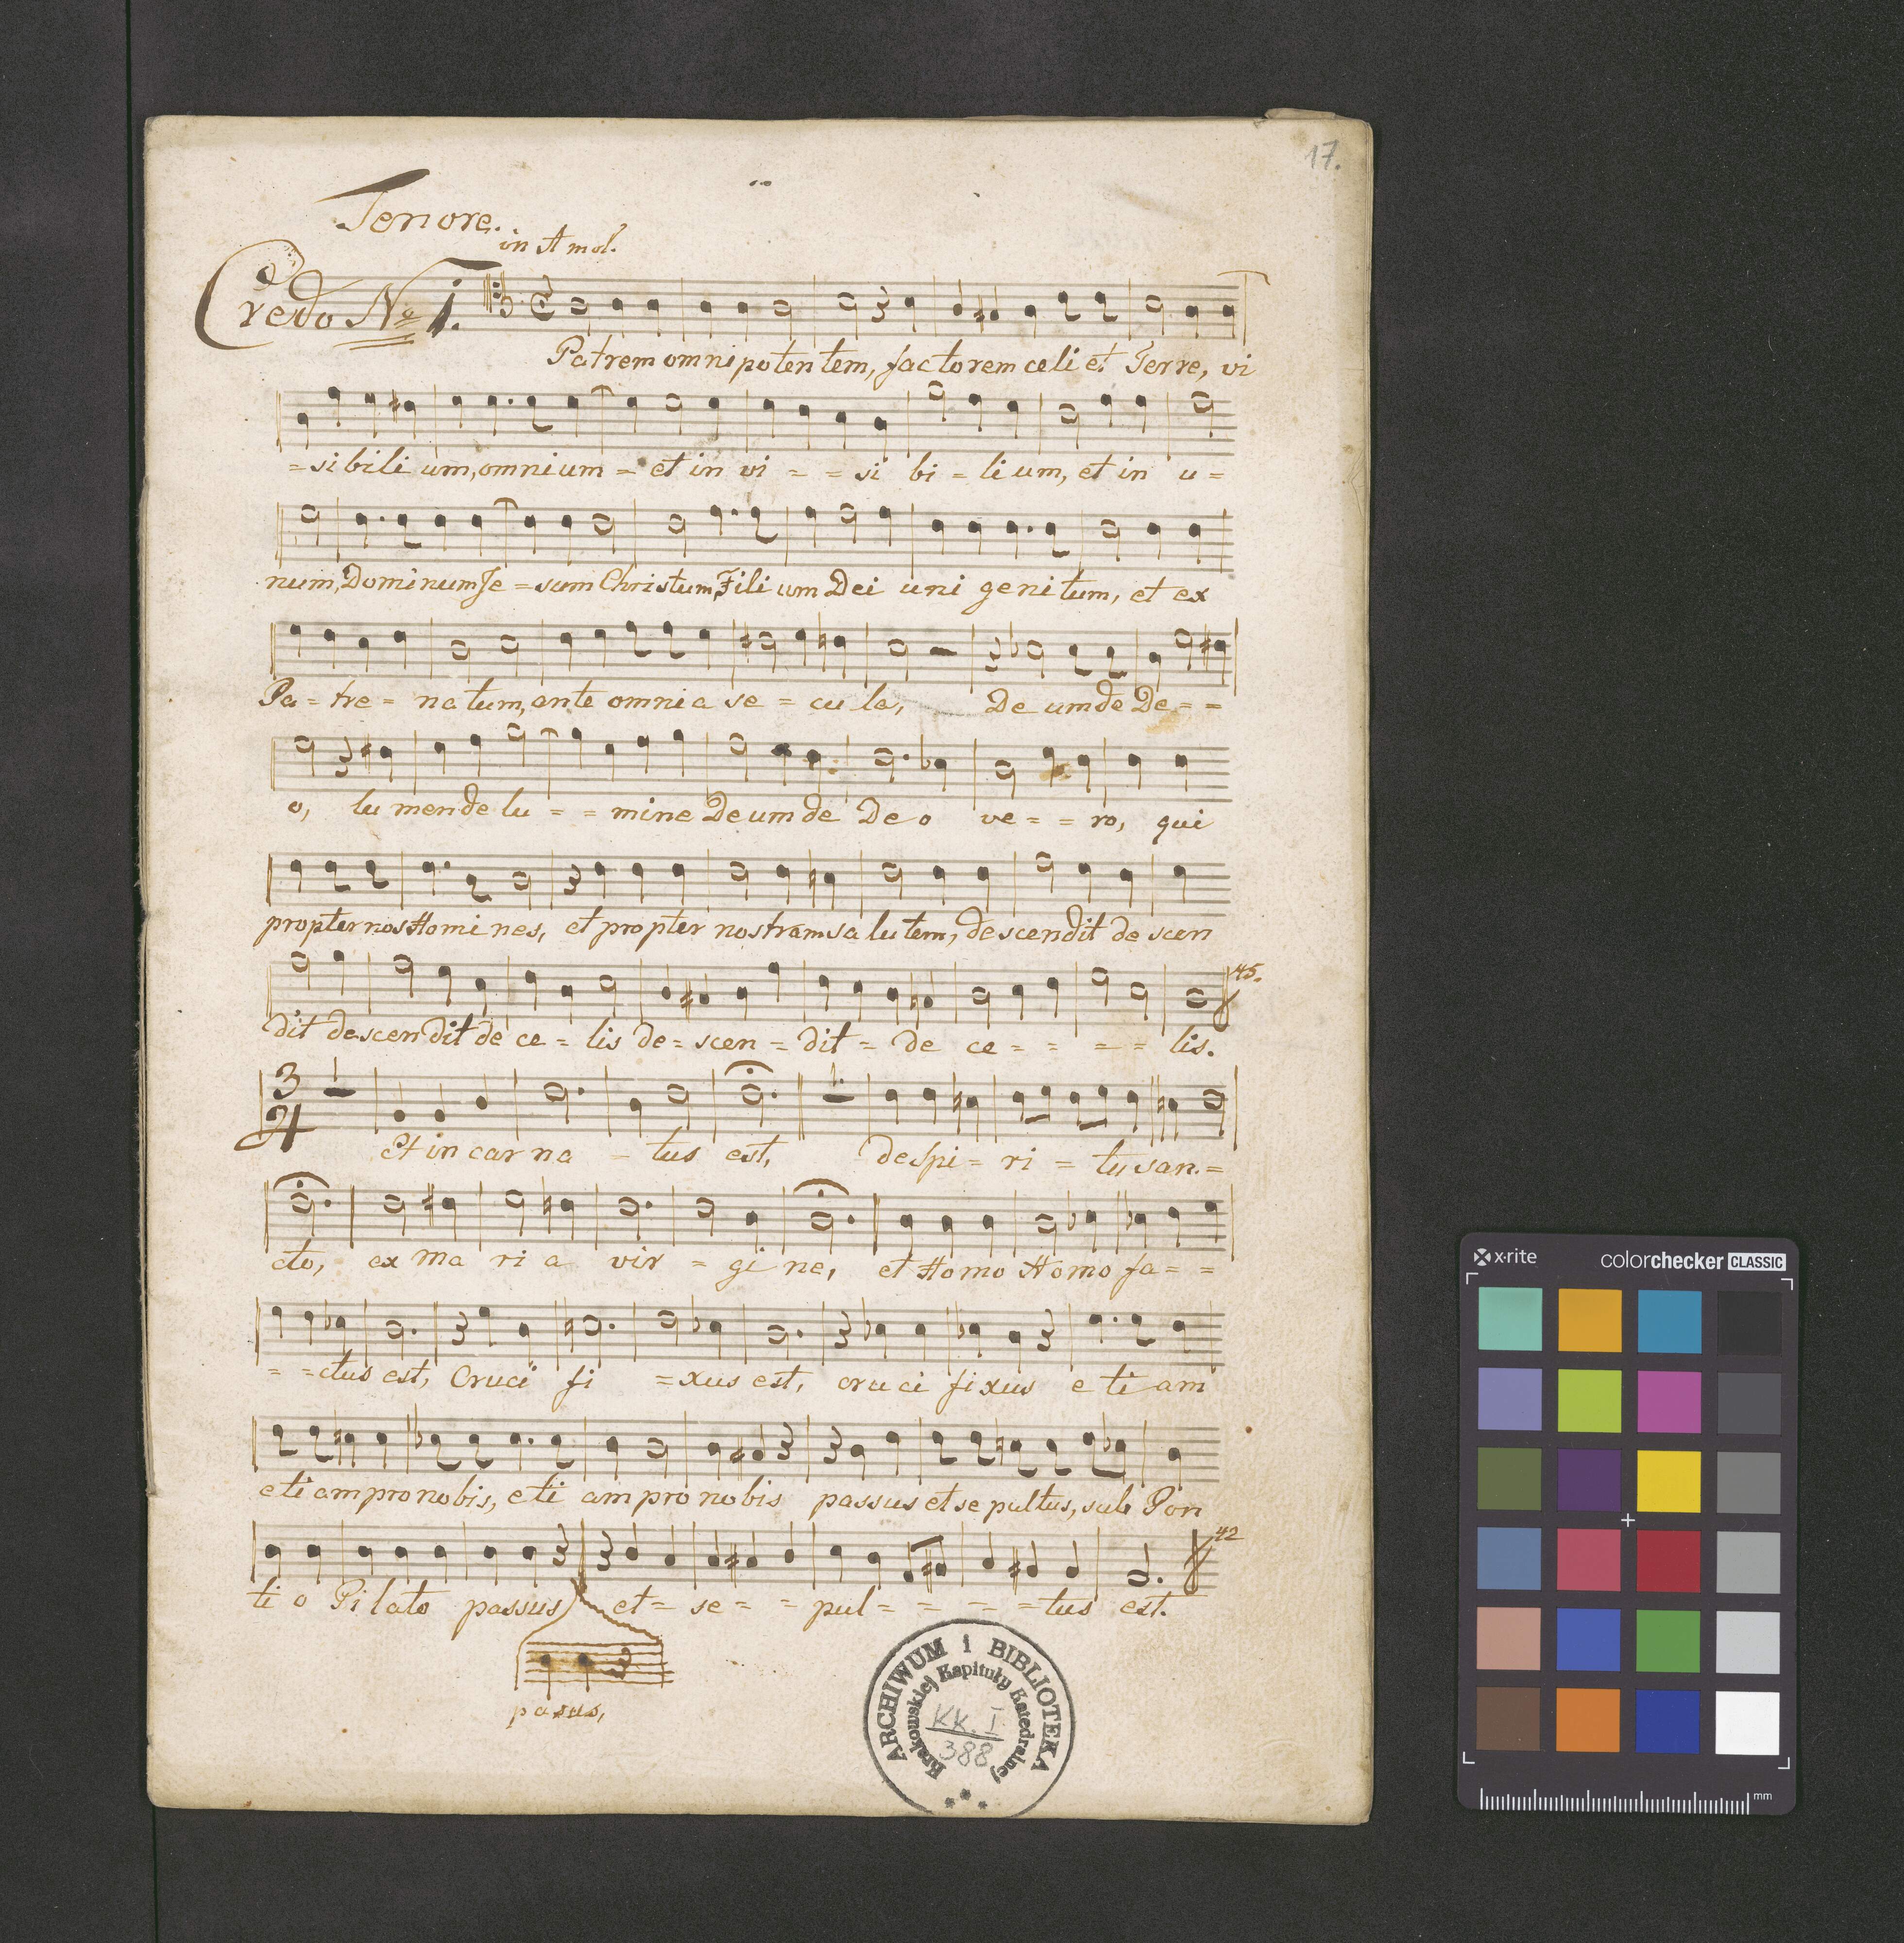 17.
Tenore.
in A mol.
Credo No 1.
Patrem omnipotentem, factorem celi et Terre, vi
=sibili um, omnium = et in vi = = si bi = li um, et in u =
num, Dominum Je = sum Christum, Fili um Dei uni genitum, et ex
Pa = tre = na tum, ante omnia se = cu la, De um de De = =
o, lu men de lu = = mine Deum de De o ve = = ro, qui
propter nos Homi nes, et propter nostram sa lu tem, descendit de scen
dit descendit de ce = lis de = scen = dit = de ce = = = = lis.
45.
3
4
1
1.
Et in car na = tus est, de Spi = ri = tu san. =
cto, ex ma ri a vir = gi ne, et Homo Homo fa = =
= =ctus est, Cruci fi =xus est, cru ci fi xus e ti am
eti am pro nobis, e ti am pro nobis passus et se pultus, sub Pon
ti o Pi lato passus) et = se = = pul = = = =tus est.
42
pasus,
ARCHIWUM i BIBLIOTEKA
Krakowskiej Kapituły Katedralnej
KK. I
388
x·rite
colorchecker CLASSIC
mm